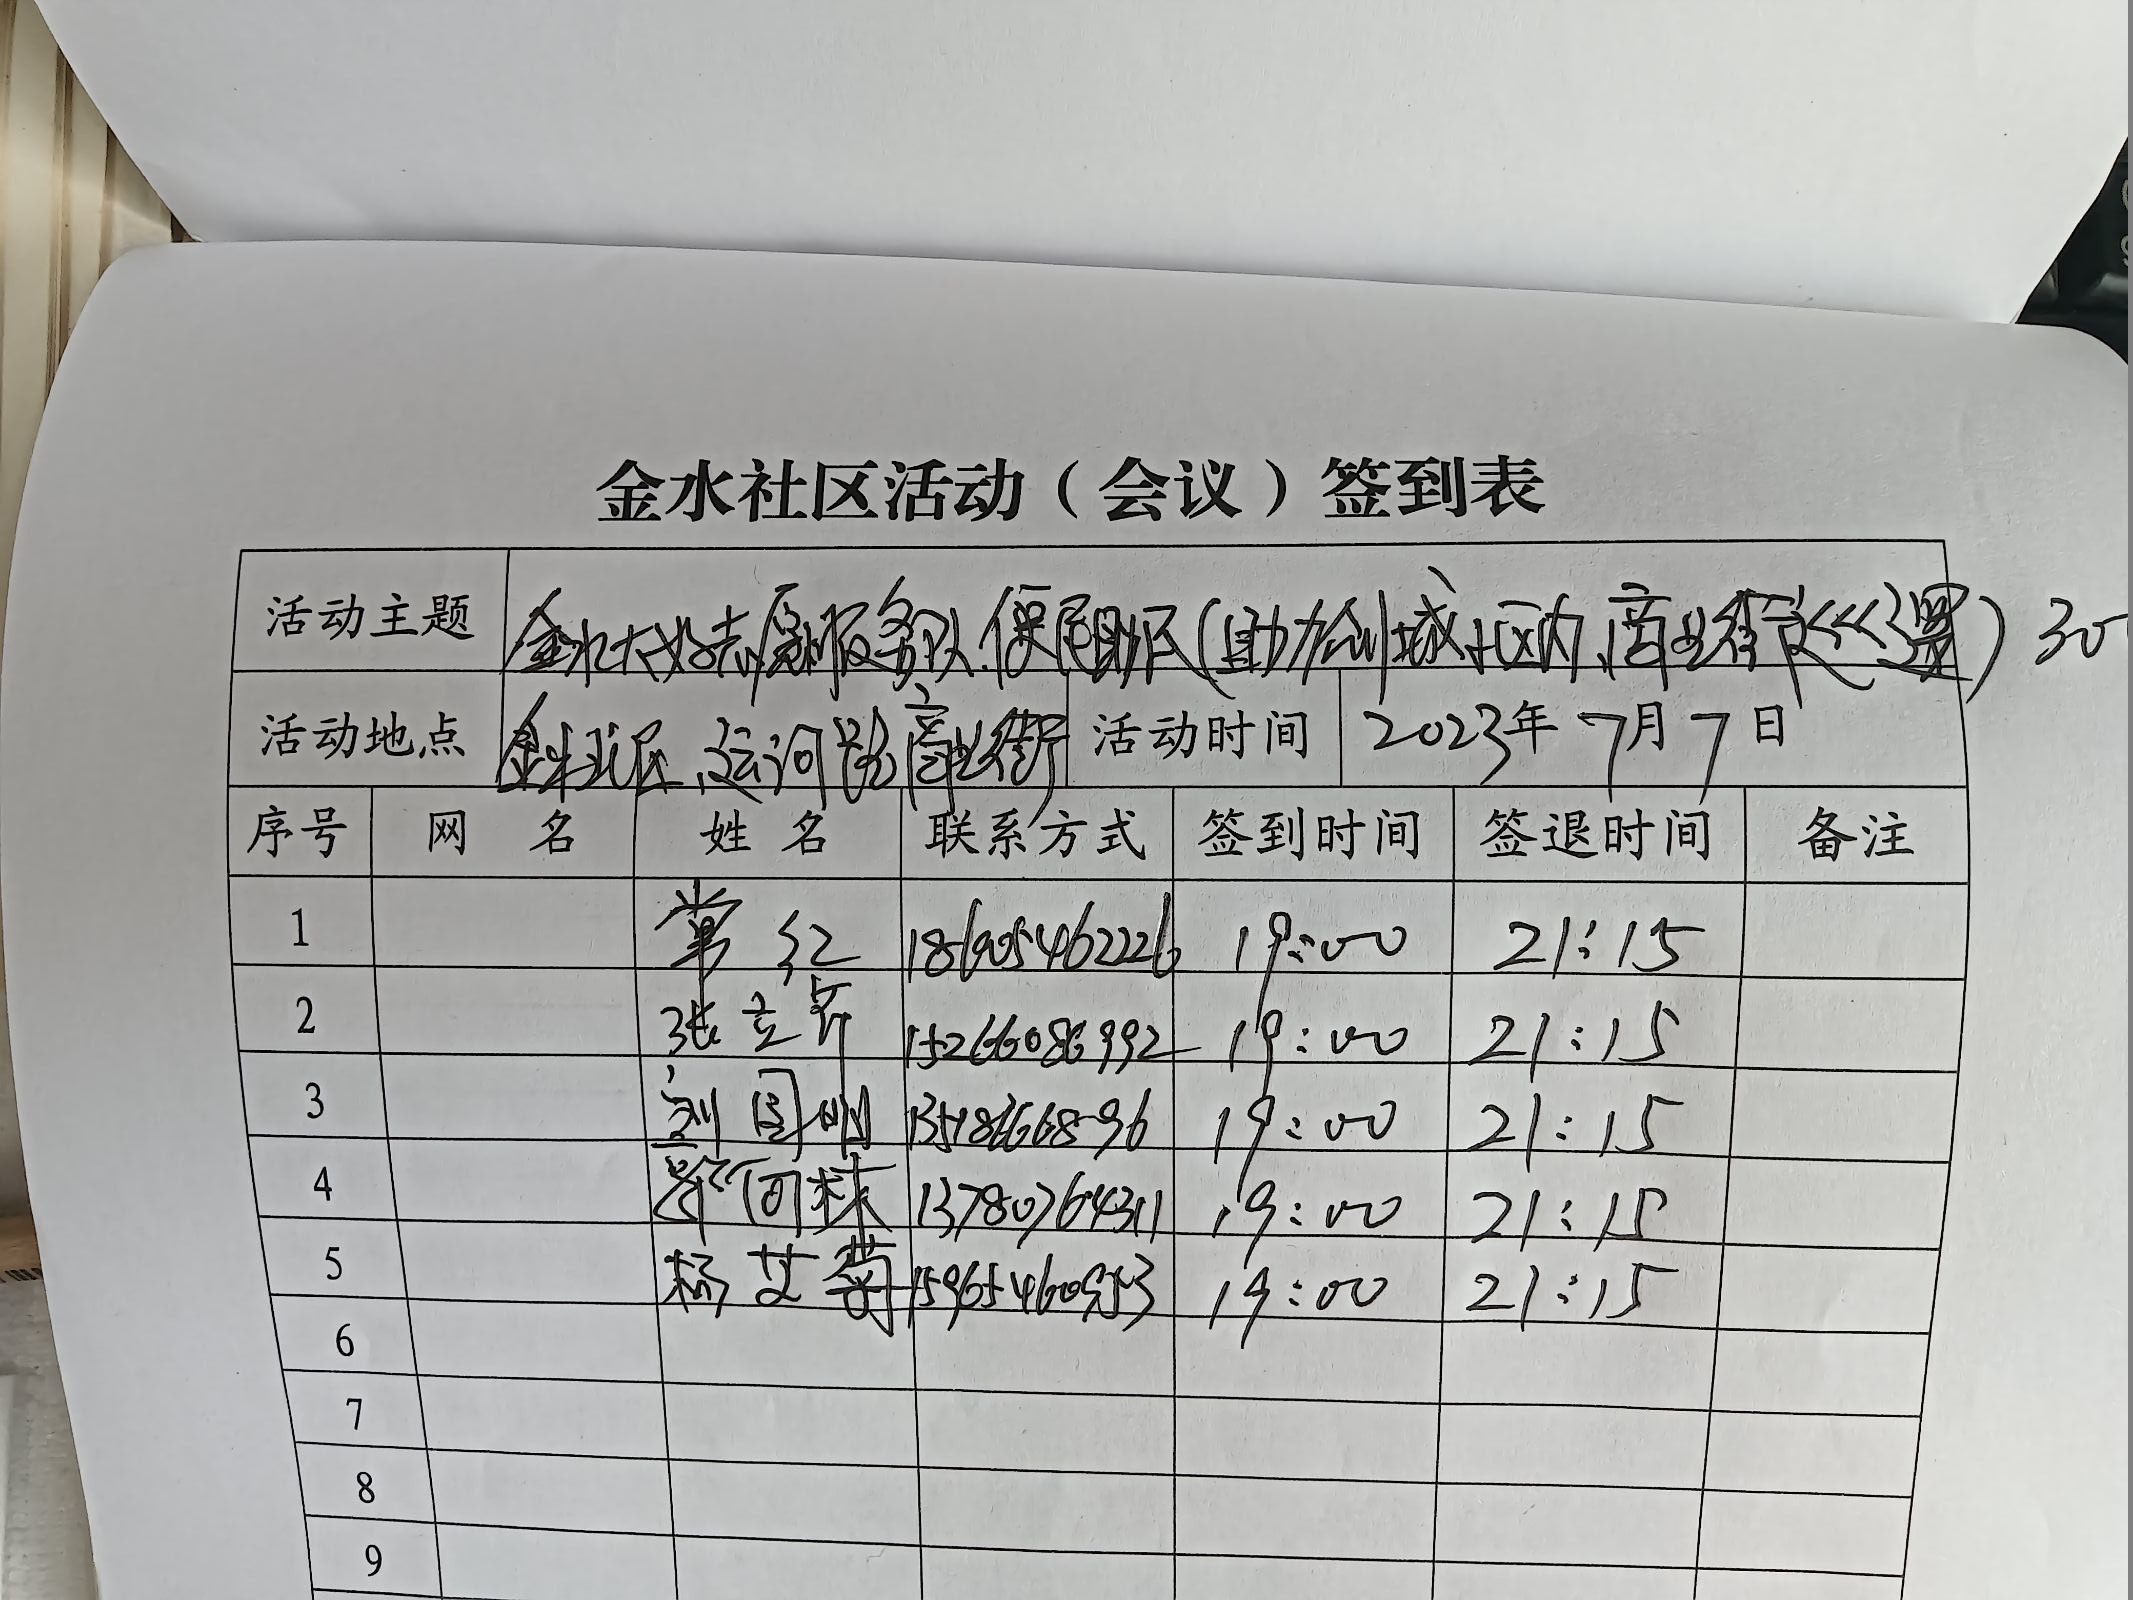 金水社区活动（会议）签到表
活动主题 金水大妈志愿服务队.便民助民(助力创城社区内、商业街巛逻) 30
活动地点 金水社区、运河 商业街 活动时间 2023年7月7日
序号 网 名 姓 名 联系方式 签到时间 签退时间 备注
1 常红 18605462226 19:00 21:15
2 张立 15266086992 19:00 21:15
3 刘国 19:00 21:15
4 13780764311 19:00 21:15
5 杨艾菊 15965460953 19:00 21:15
6
7
8
9